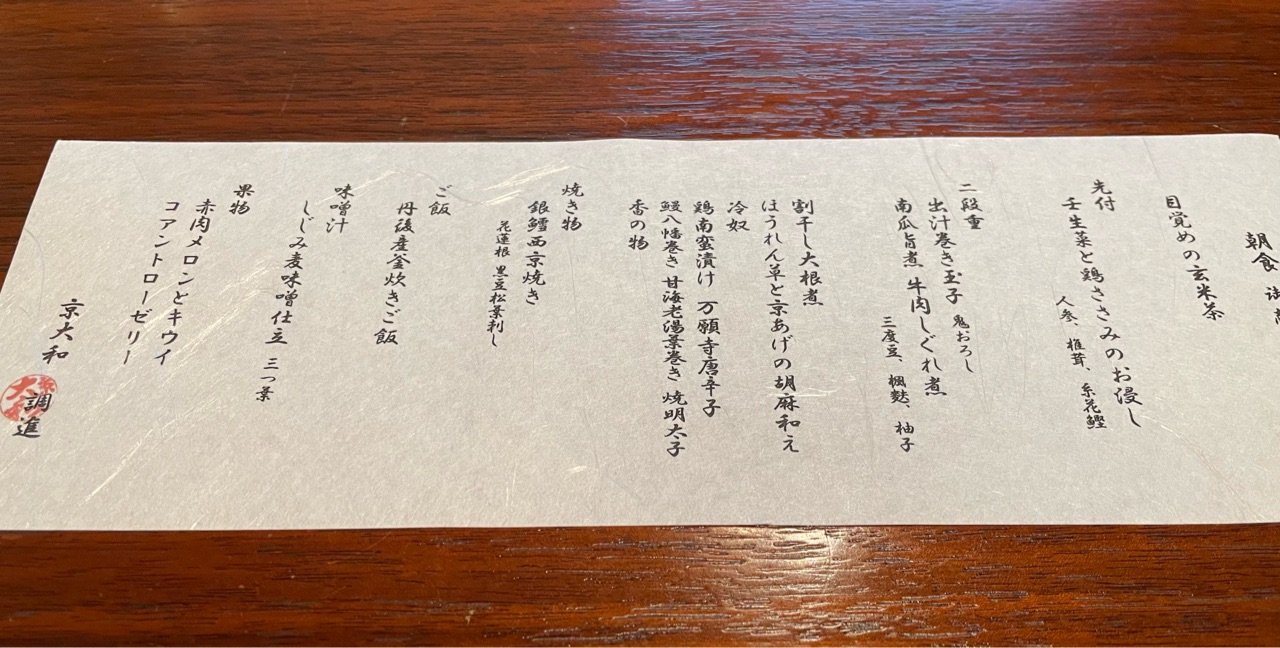 朝食
目覚めの玄米茶
先付
壬生菜と鶏ささみのお浸し
人参、椎茸、糸花鰹
二段重
出汁巻き玉子 鬼おろし
南瓜旨煮 牛肉しぐれ煮
三度豆、楓麩、柚子
割干し大根煮
ほうれん草と京あげの胡麻和え
冷奴
鶏南蛮漬け 万願寺唐辛子
鰻八幡巻き 甘海老湯葉巻き 焼明太子
香の物
焼き物
銀鱈西京焼き
花蓮根 黒豆松葉刺し
ご飯
丹後産釜炊きご飯
味噌汁
しじみ麦味噌仕立 三つ葉
果物
赤肉メロンとキウイ
コアントローゼリー
京大和 調進